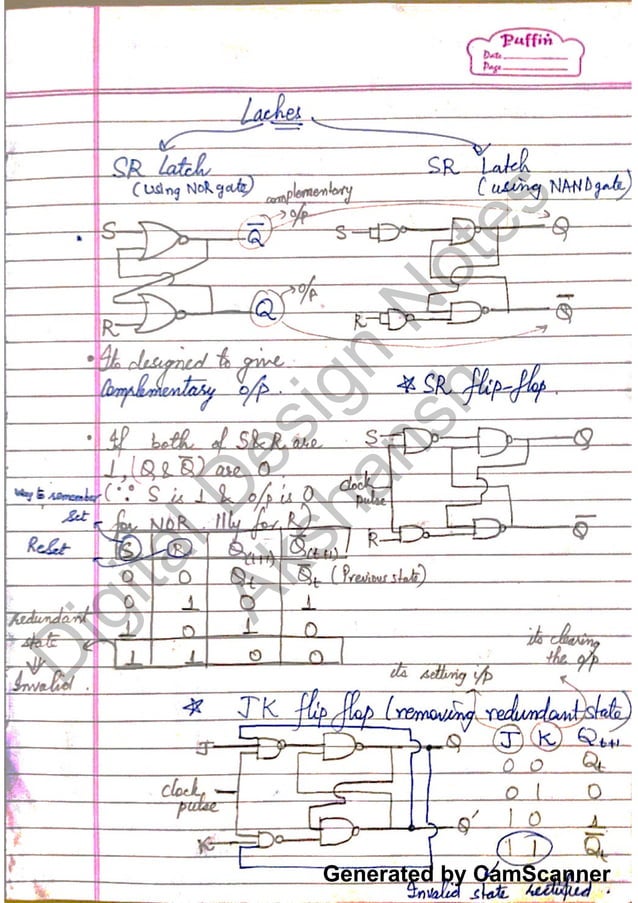 Puffin
Date
Page
Laches
SR Latch
(using NOR gate)
SR Latch
(using NAND gate)
complementary
o/p
S
Q̅
o/p
Q
R
S
Q
R
Q̅
• Its designed to give
complementary o/p.
* SR flip-flop
• If both of S & R are
1, (Q & Q̅) are 0
way to remember
(∵ S is 1 & o/p is 0
for NOR. Illy for R)
S
clock
pulse
R
Q
Q̅
Set
Reset
S R Q(t+1) Q̅(t+1)
0 0 Qt Q̅t (Previous state)
0 1 0 1
1 0 1 0
1 1 0 0
redundant
state
⇓
Invalid.
its setting i/p
its clearing
the o/p
* JK flip flop (removing redundant state)
J
clock
pulse
K
Q
Q'
J K Qt+1
0 0 Qt
0 1 0
1 0 1
1 1 Q̅t
Invalid state rectified.
Digital Design Notes
Akshansh
Generated by CamScanner